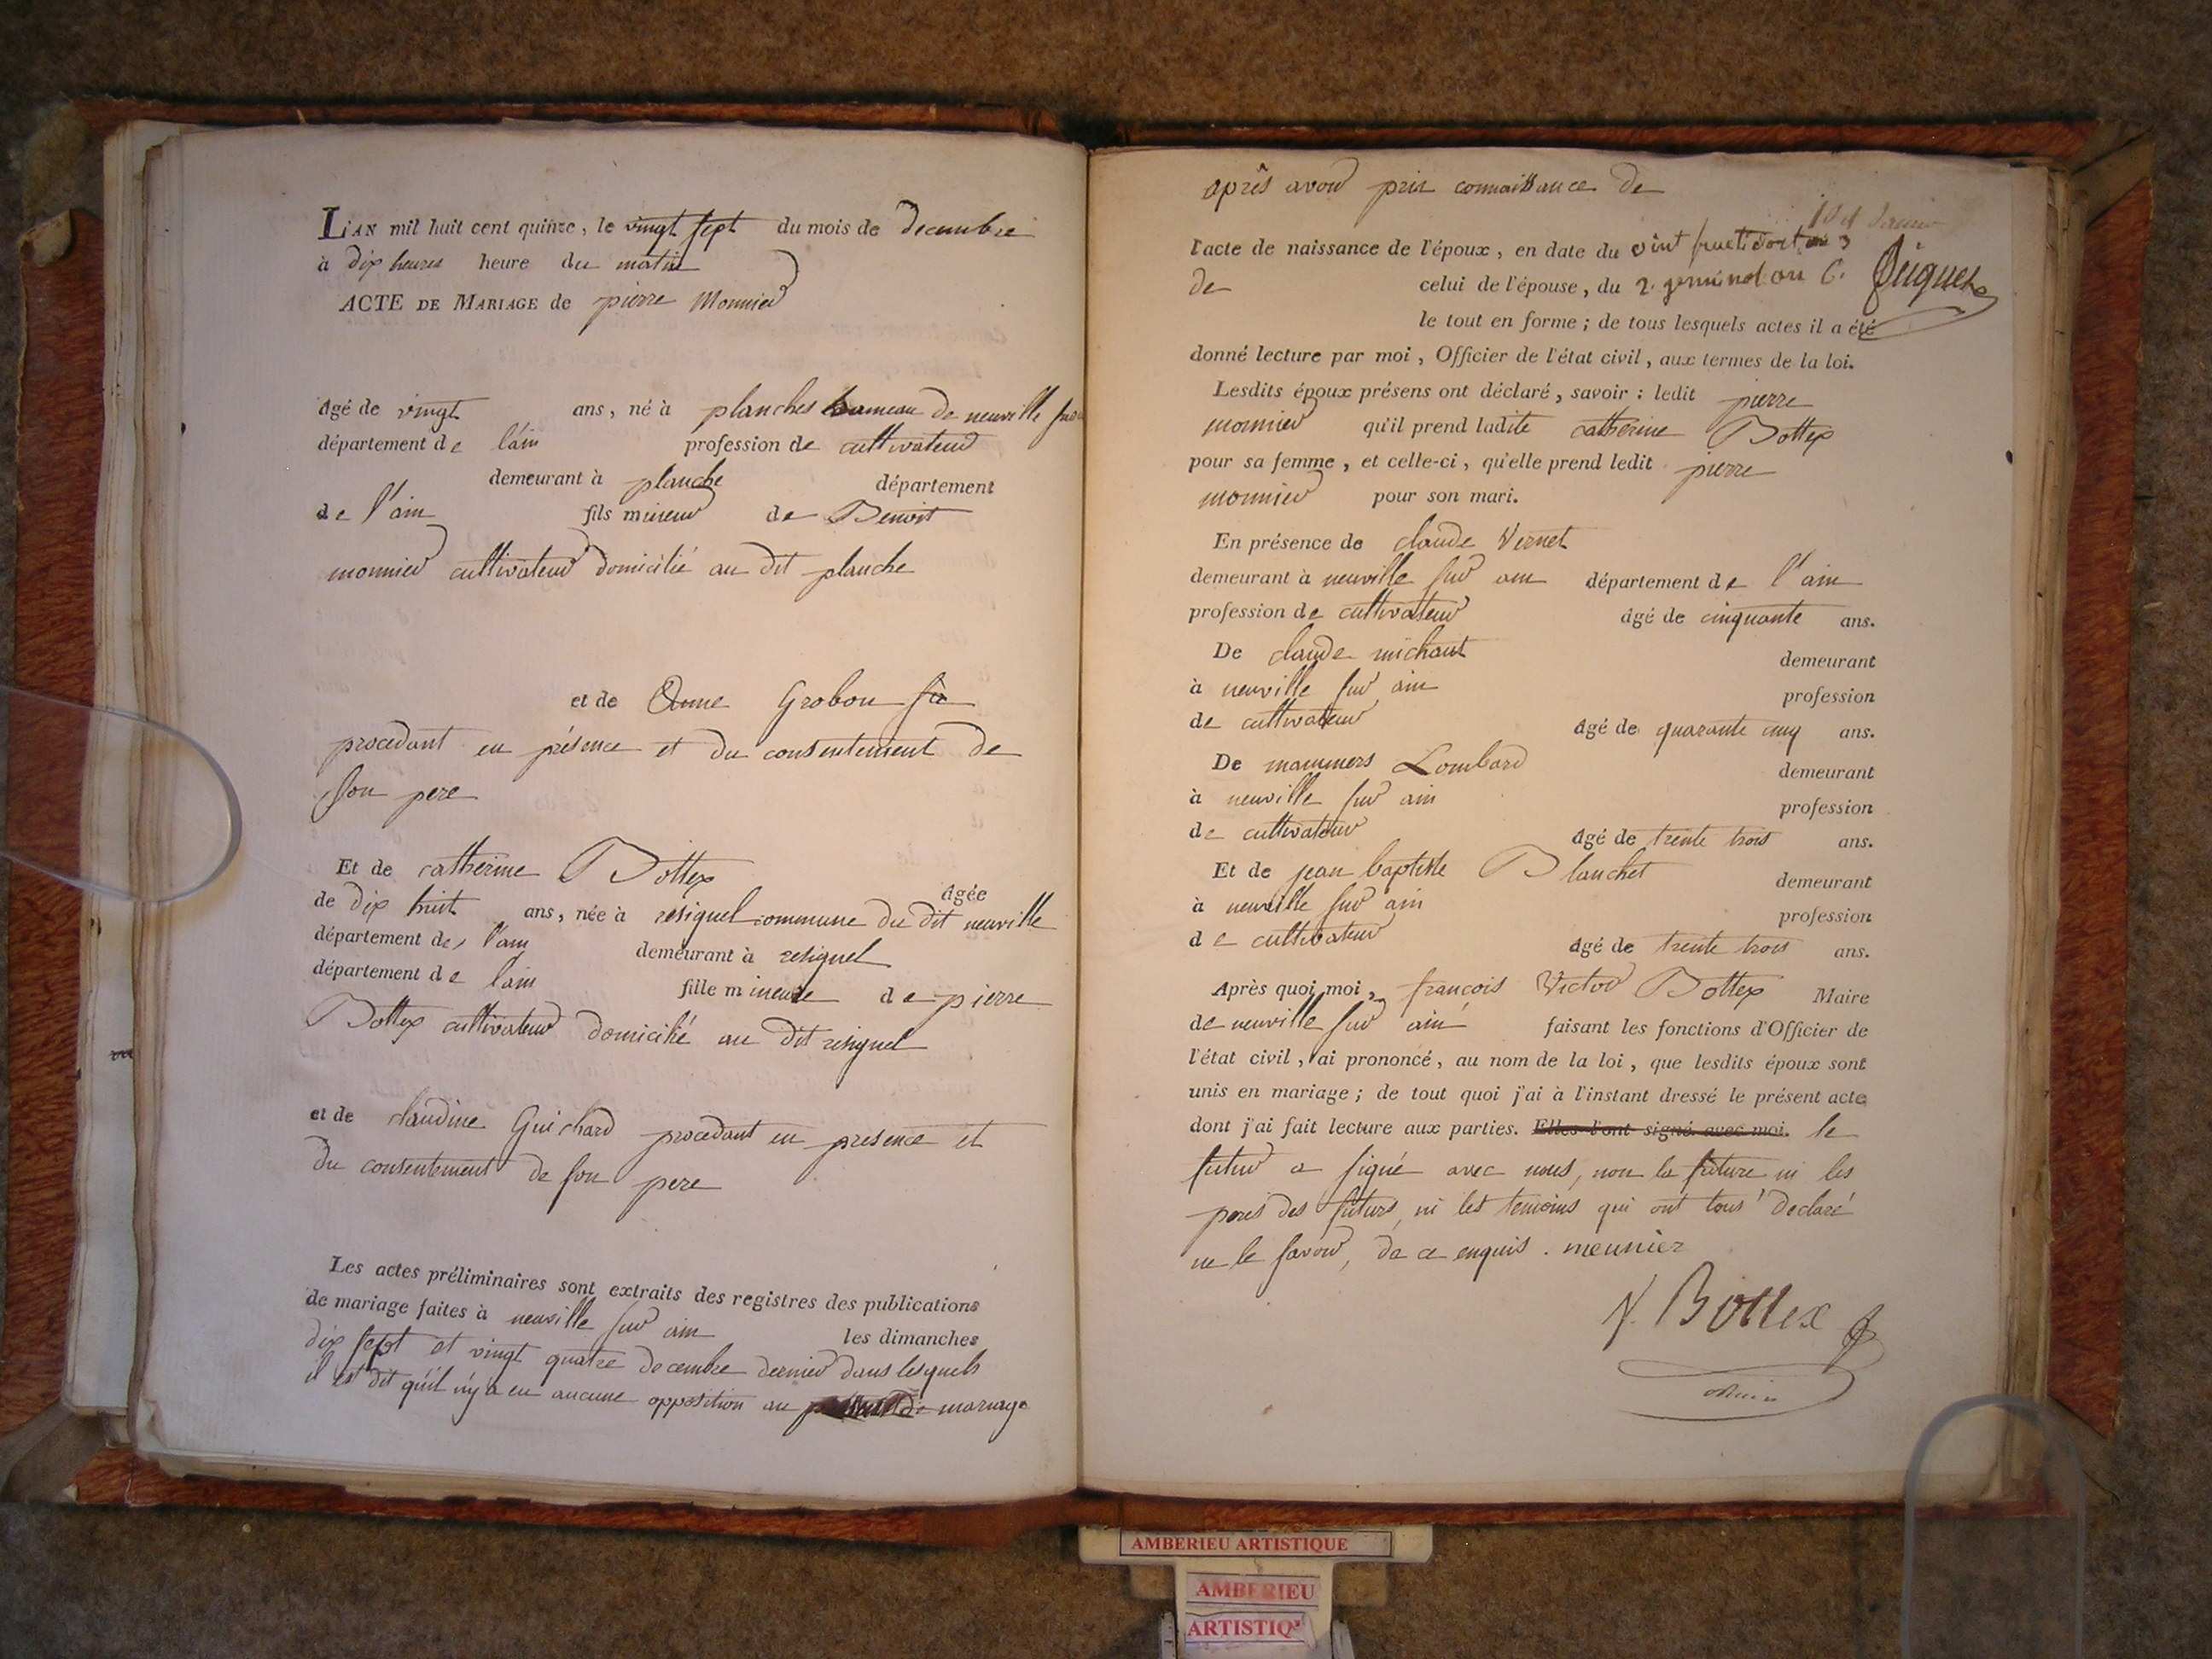 L'AN mil huit cent quinze, le vingt sept du mois de decembre
à dix heures heure du matin
ACTE DE MARIAGE de pierre Monnier
âgé de vingt ans, né à planches hameau de neuville sur
département de l'ain profession de cultivateur
demeurant à planche département
de l'ain fils mineur de Benoit
monnier cultivateur domicilié au dit planche
et de Anne Grobon
procedant en présence et du consentement de
son pere
Et de catherine Bottex âgée
de dix huit ans, née à resignel commune du dit neuville
département de l'ain demeurant à resignel
département de l'ain fille mineure de pierre
Bottex cultivateur domicilié au dit resignel
et de claudine Guichard procedant en presence et
du consentement de son pere
Les actes préliminaires sont extraits des registres des publications
de mariage faites à neuville sur ain les dimanches
dix sept et vingt quatre decembre dernier dans lesquels
il est dit qu'il n'y a eu aucune opposition au mariage
après avoir pris connaissance de
l'acte de naissance de l'époux, en date du vint fructidort an 3
de celui de l'épouse, du 2 geminal an 6.
le tout en forme ; de tous lesquels actes il a été
donné lecture par moi, Officier de l'état civil, aux termes de la loi.
Lesdits époux présens ont déclaré, savoir : ledit pierre
monnier qu'il prend ladite catherine Bottex
pour sa femme, et celle-ci, qu'elle prend ledit pierre
monnier pour son mari.
En présence de claude Vernet
demeurant à neuville sur ain département de l'ain
profession de cultivateur âgé de cinquante ans.
De claude michaut demeurant
à neuville sur ain profession
de cultivateur âgé de quarante cinq ans.
De mammers Lombard demeurant
à neuville sur ain profession
de cultivateur âgé de trente trois ans.
Et de jean baptiste Blanchet demeurant
à neuville sur ain profession
de cultivateur âgé de trente trois ans.
Après quoi moi, françois Victor Bottex Maire
de neuville sur ain faisant les fonctions d'Officier de
l'état civil, ai prononcé, au nom de la loi, que lesdits époux sont
unis en mariage ; de tout quoi j'ai à l'instant dressé le présent acte
dont j'ai fait lecture aux parties. Elles l'ont signé avec moi. le
futur a signé avec nous, non la future ni les
peres des futurs, ni les temoins qui ont tous declaré
ne le savoir, de ce enquis. meunier
V. Bottex
AMBERIEU ARTISTIQUE
AMBERIEU
ARTISTIQ